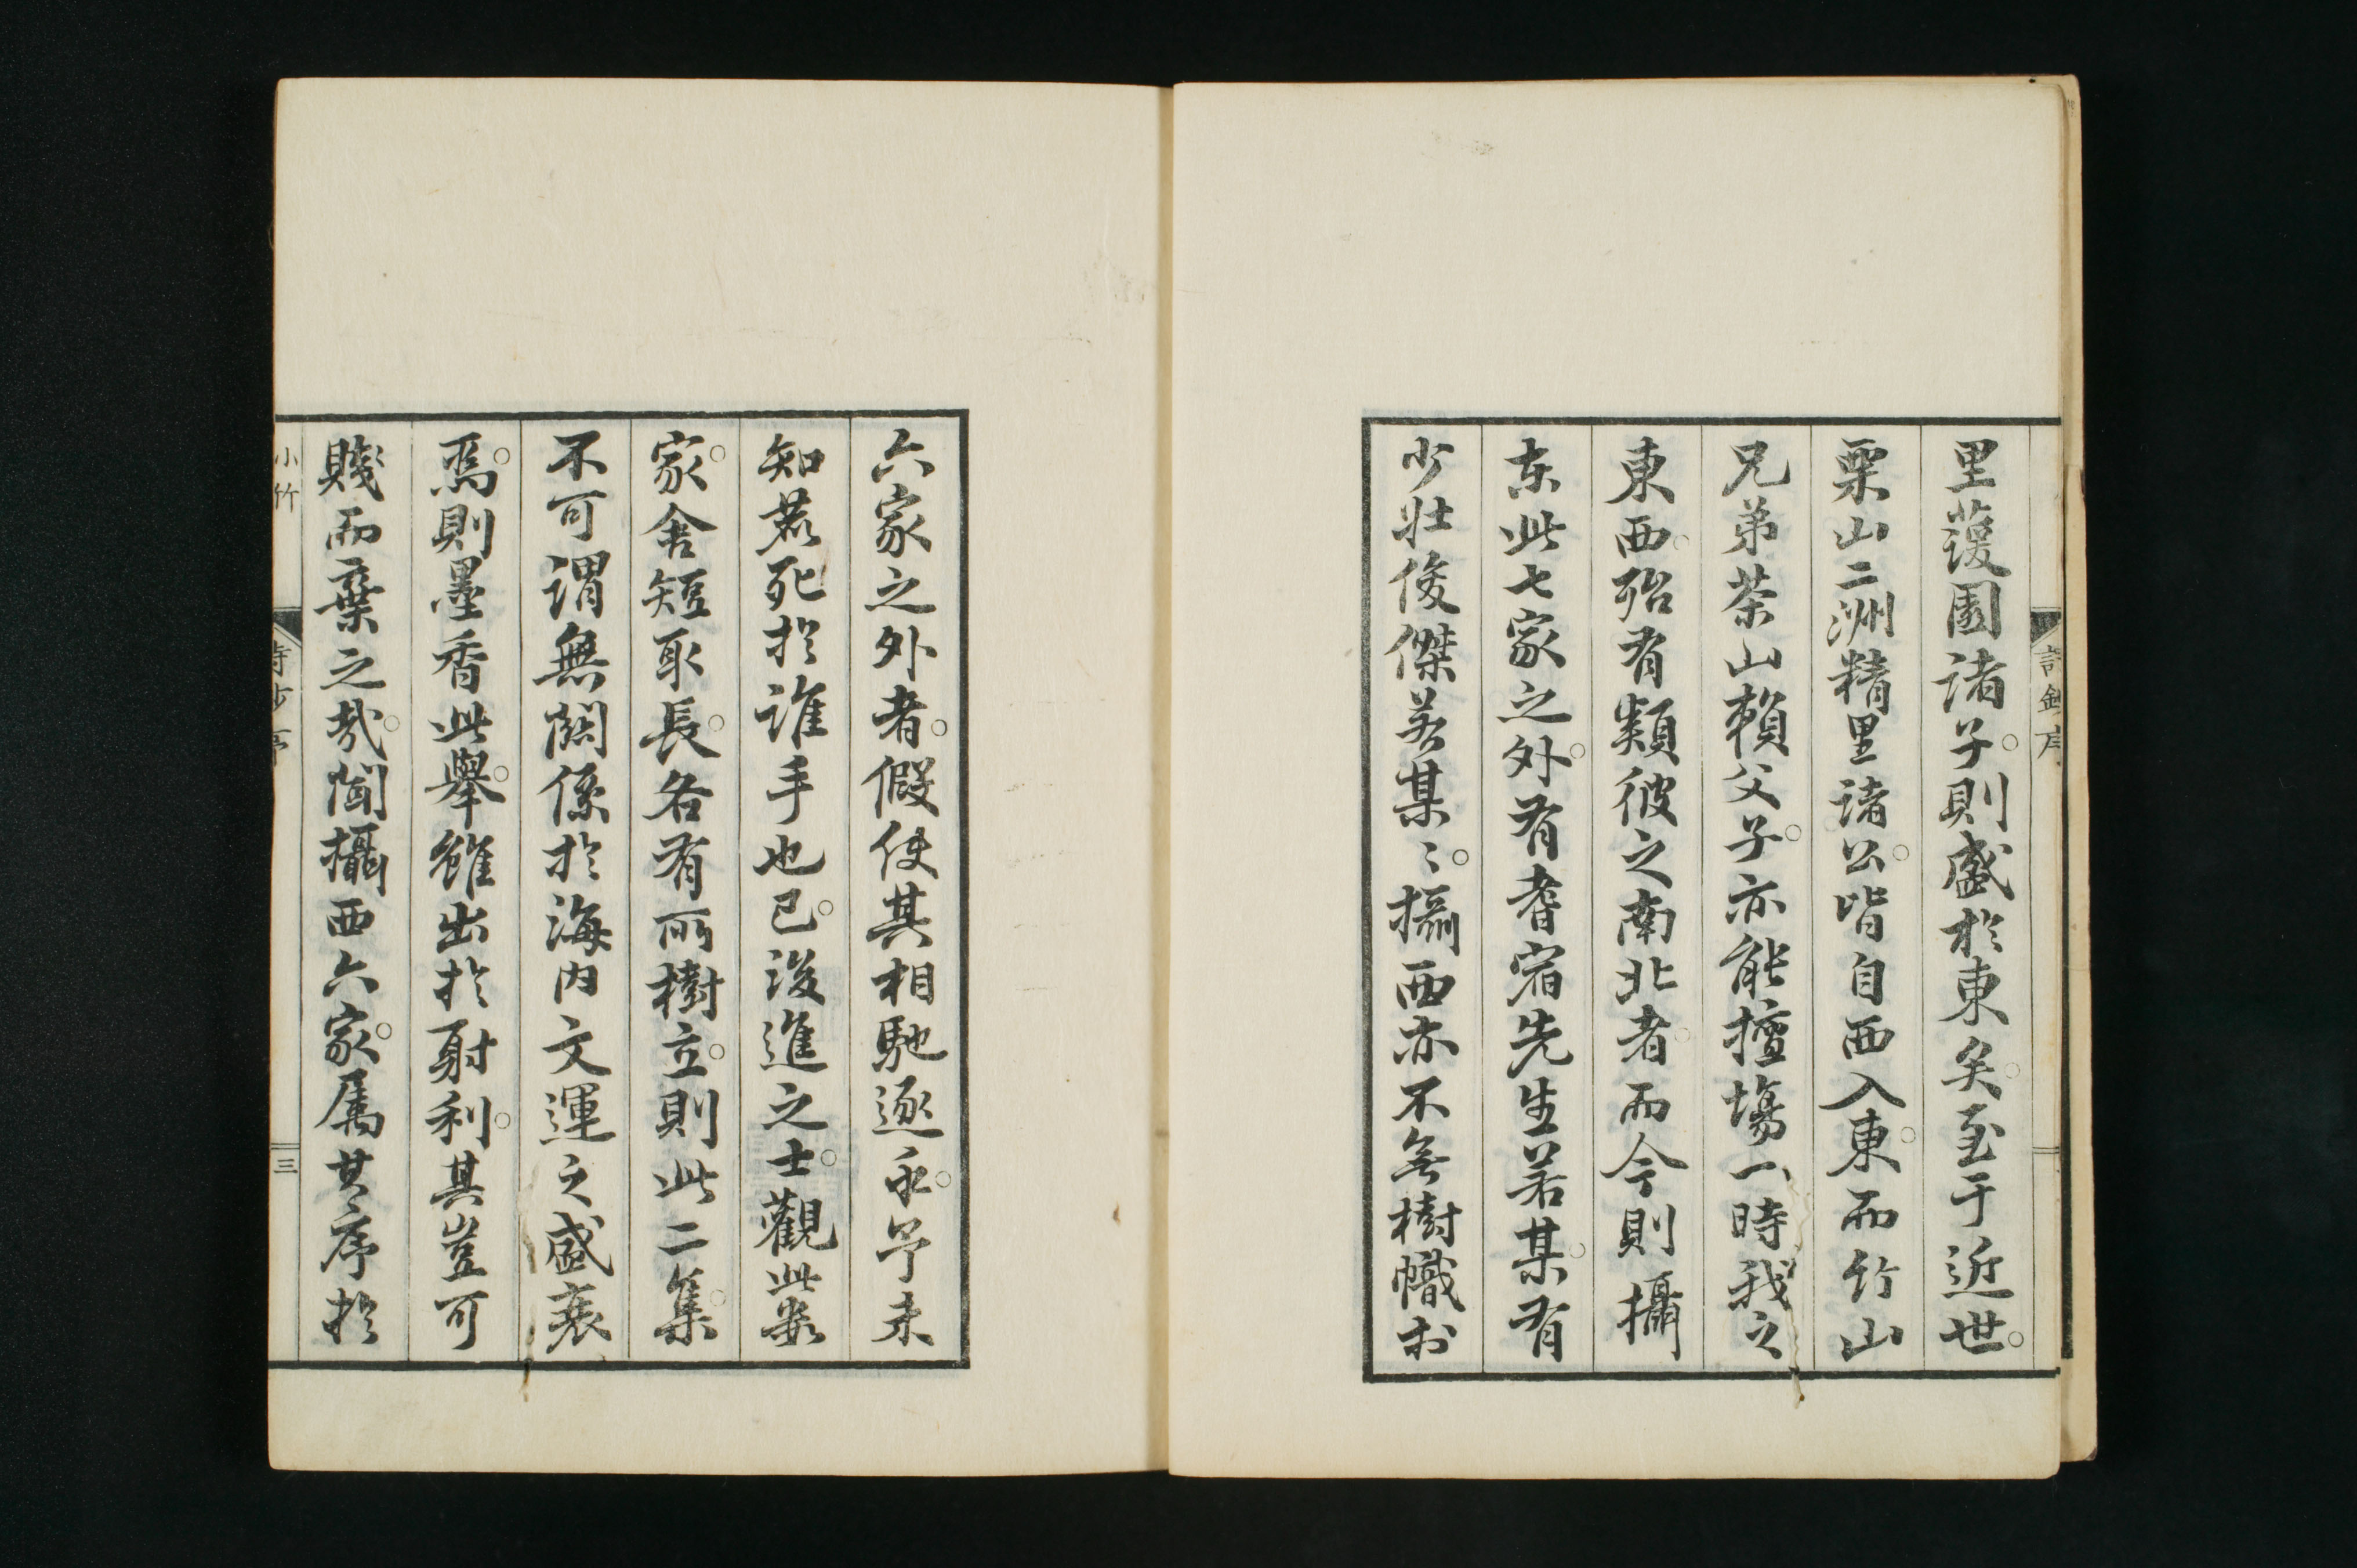 里蘐園諸子則盛於東矣至于近世
栗山二洲精里諸公皆自西入東而竹山
兄弟茶山賴父子亦能擅場一時我之
東西殆有類彼之南北者而今則攝
東此七家之外有耆宿先生若某有
少壯俊傑若某〻攝西亦不無樹幟於
六家之外者假使其相馳逐永予未
知鹿死於誰手也已後進之士觀此數
家舍短取長各有所樹立則此二集
不可謂無關係於海內文運之盛衰
焉則墨香此舉雖出於射利其豈可
賤而棄之哉聞攝西六家屬其序於
詩鈔序
小竹
詩鈔序
三